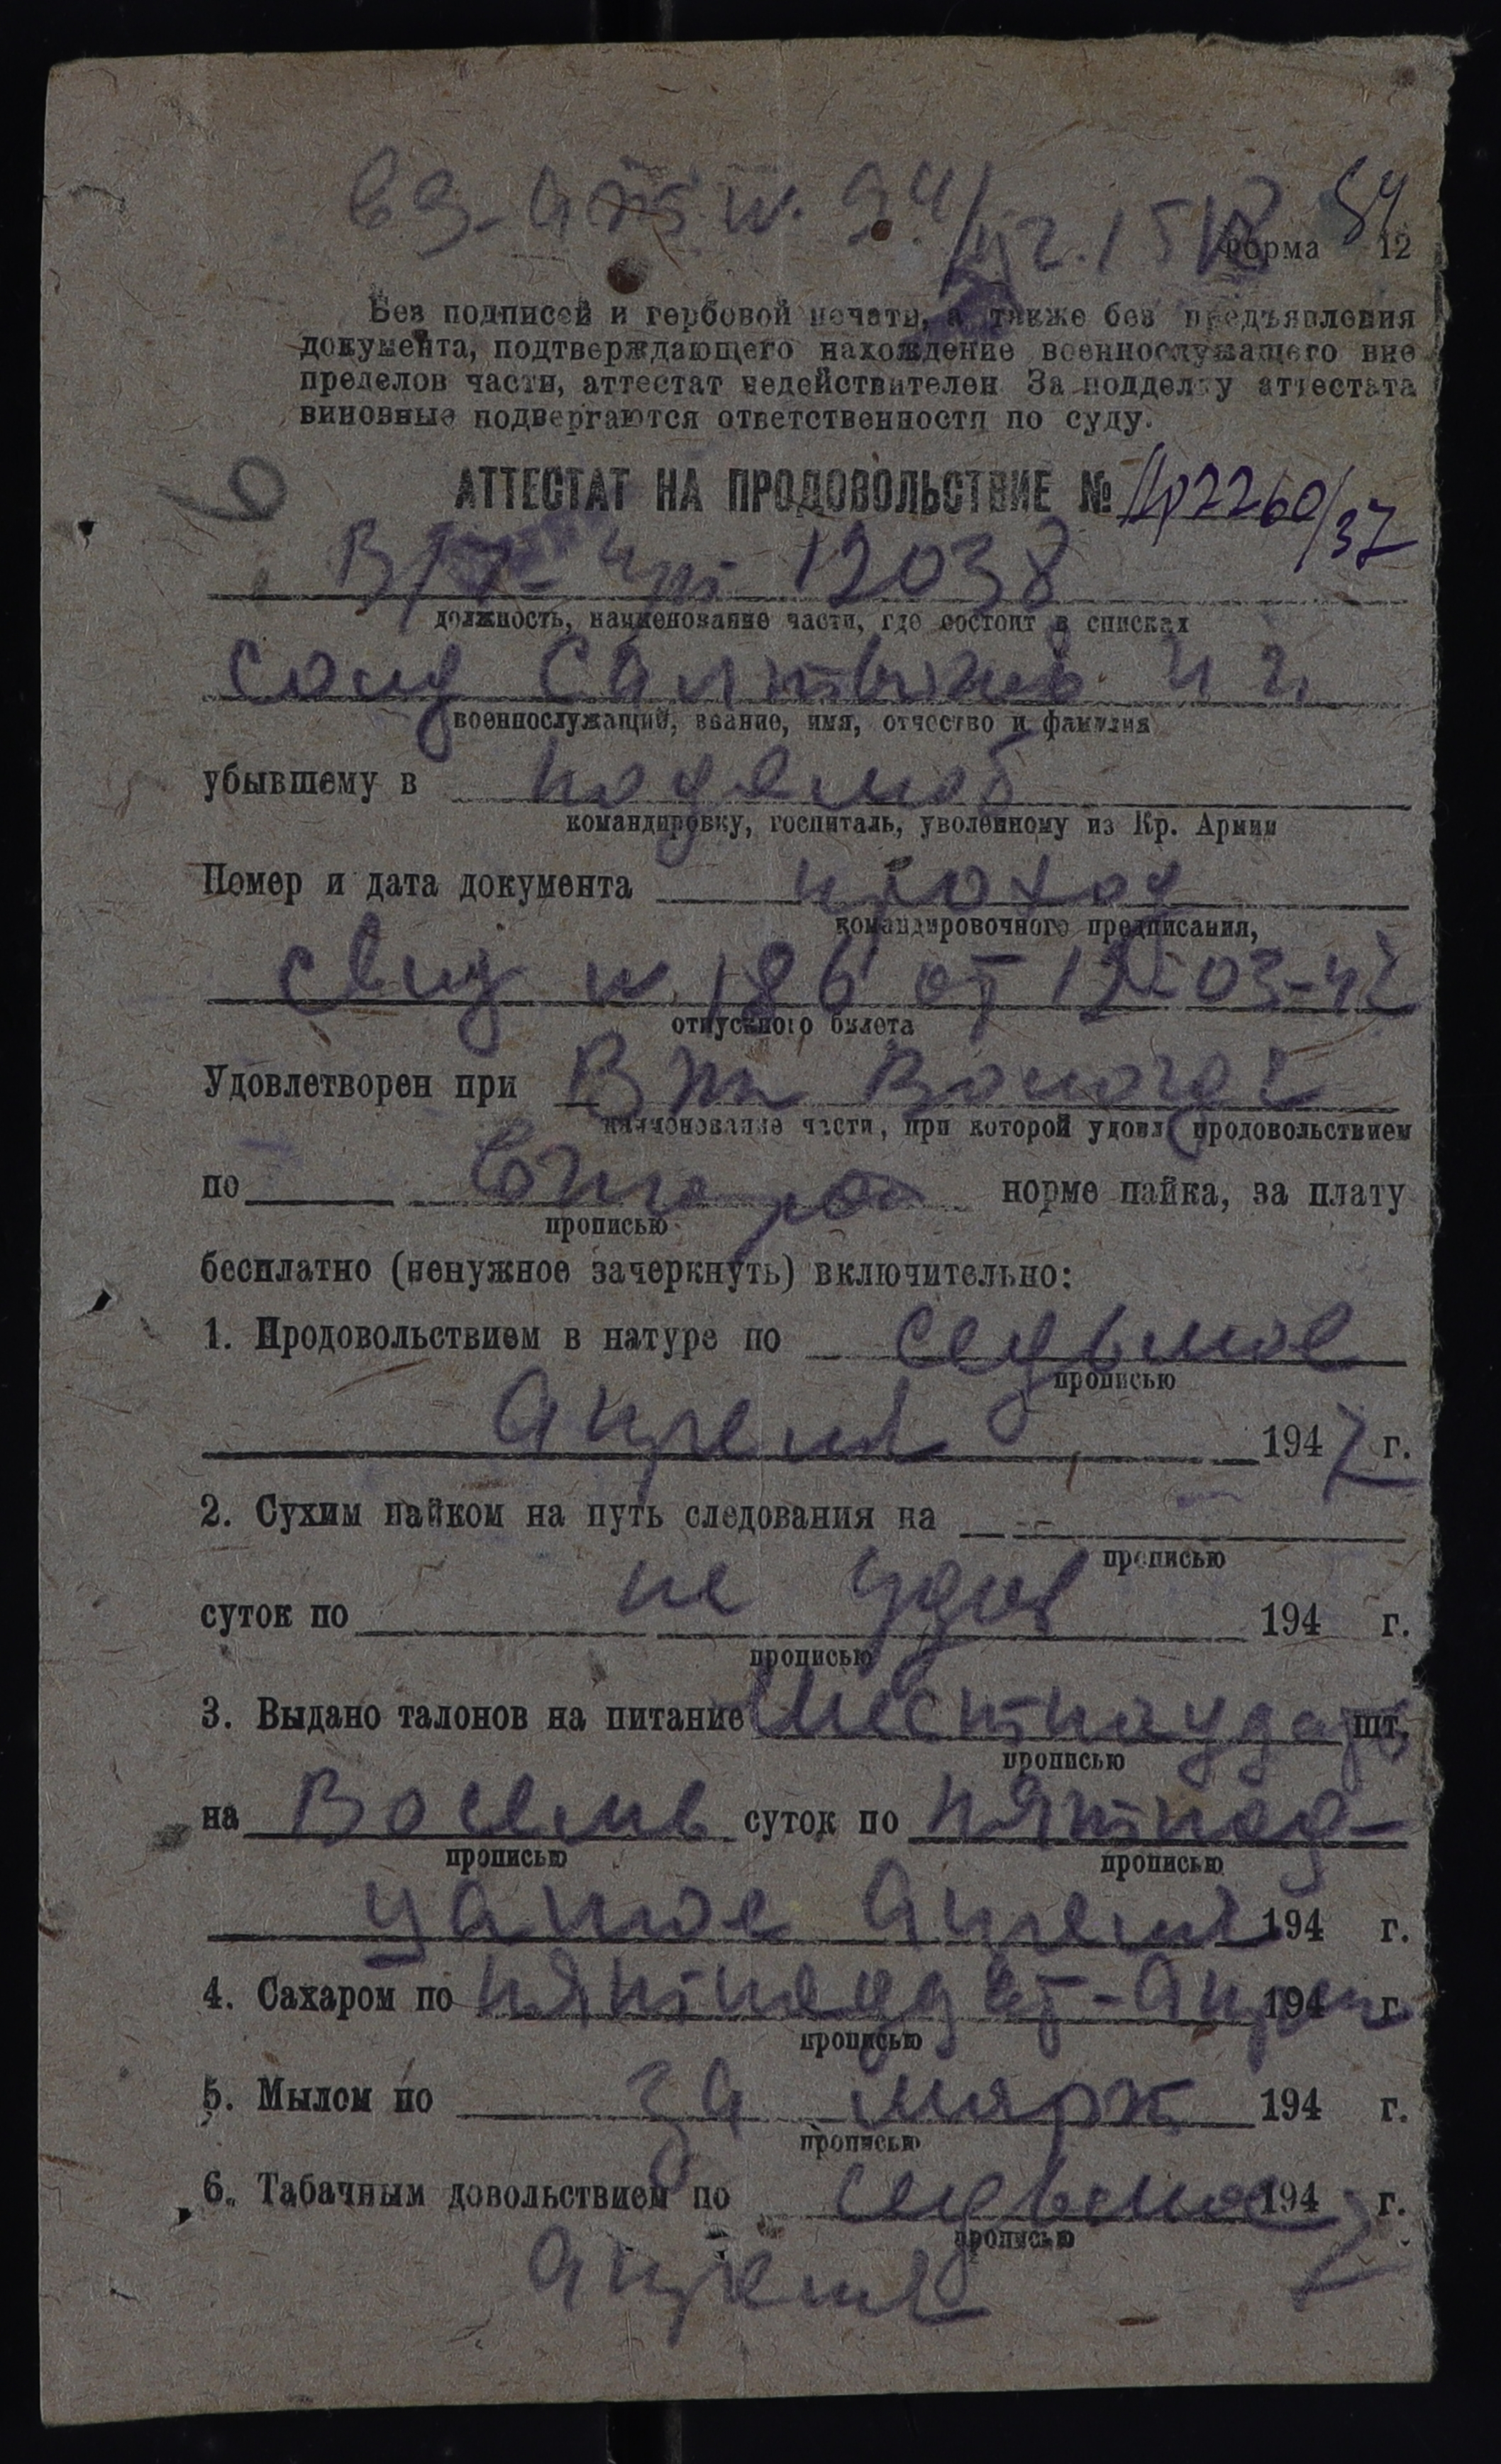 вз-ат N. 94/
54
Форма 12
Без подписей и гербовой печати, а также без предъявления
документа, подтверждающего нахождение военнослужащего вне
пределов части, аттестат недействителен За подделку аттестата
виновные подвергаются ответственности по суду.
АТТЕСТАТ НА ПРОДОВОЛЬСТВИЕ № 2260/37
12038
должность, наименование части, где состоит в списках
солд
военнослужащий, звание, имя, отчество и фамилия
убывшему в по демоб
командировку, госпиталь, уволенному из Кр. Армии
Номер и дата документа проход
командировочного предписания,
свид N 186 от 12-03-47
отпускного билета
Удовлетворен при Впп Вологда
наименование части, при которой удовл продовольствием
по норме пайка, за плату
прописью
бесплатно (ненужное зачеркнуть) включительно:
1. Продовольствием в натуре по седьмое
прописью
Апреля 1947 г.
2. Сухим пайком на путь следования на —
прописью
суток по не удов 194 г.
прописью
3. Выдано талонов на питание шт.
прописью
на Восемь суток по пятнад-
прописью прописью
цатое Апреля 194 г.
4. Сахаром по пятнадцат-Апрел 194 г.
прописью
5. Мылом по за март 194 г.
прописью
6. Табачным довольствием по седьмое 1947 г.
прописью
апреля